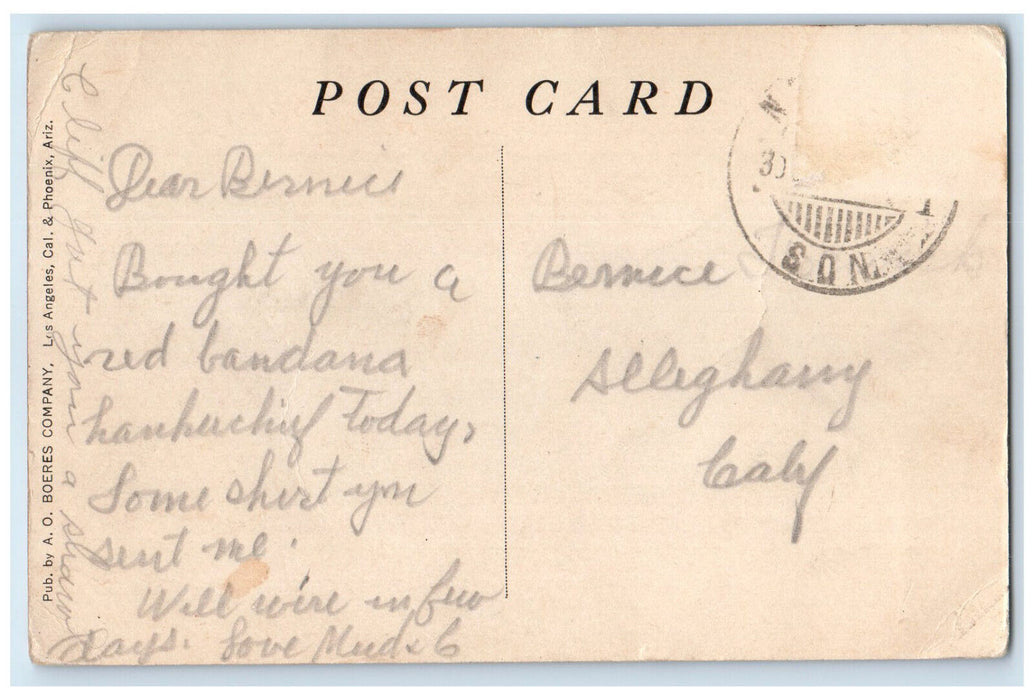 POST CARD
Dear Bernice
Bought you a
red bandana
hankerchief Today,
Some shirt you
sent me.
Will wire in few
Days. Love Mud & C
Cliff got you a shawl
Pub. by A. O. BOERES COMPANY, Los Angeles, Cal. & Phoenix, Ariz.
Bernice
Alleghany
Calif
30
SON